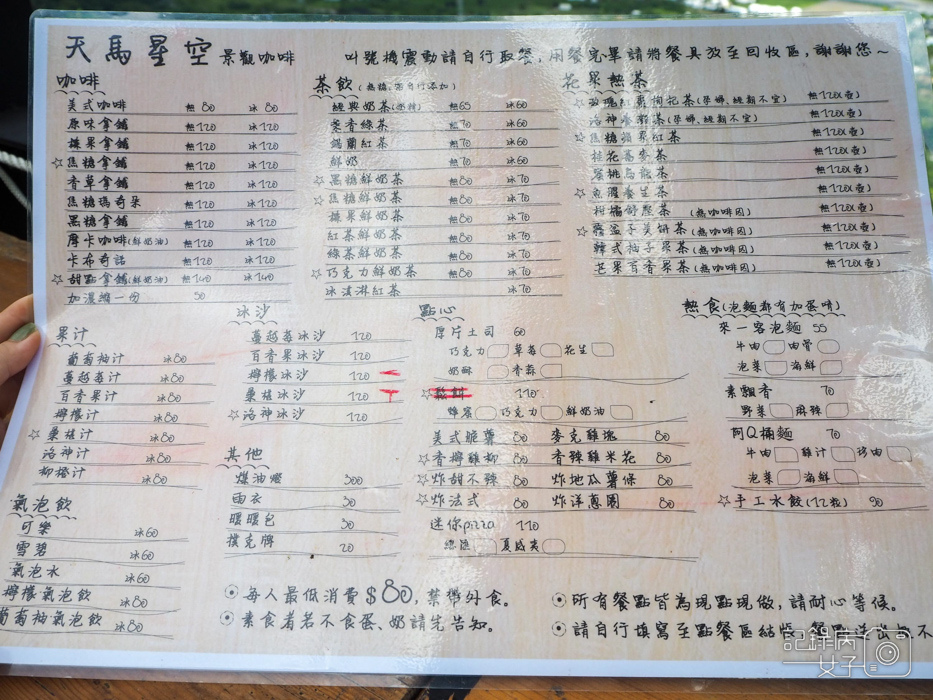 天馬星空 景觀咖啡
叫號機震動請自行取餐,用餐完畢請將餐具放至回收區,謝謝您~
咖啡
美式咖啡 熱80 冰80
原味拿鋪 熱120 冰120
榛果拿鋪 熱120 冰120
☆焦糖拿鋪 熱120 冰120
香草拿鋪 熱120 冰120
焦糖瑪奇朵 熱120 冰120
黑糖拿鋪 熱120 冰120
摩卡咖啡(鮮奶油) 熱120 冰120
卡布奇諾 熱120 冰120
☆甜點拿鋪(鮮奶油) 熱140 冰140
加濃縮一份 50
茶飲
經典奶茶(奶精) 熱65 冰60
茉香綠茶 熱70 冰60
錫蘭紅茶 熱70 冰60
鮮奶 熱70 冰60
☆黑糖鮮奶茶 熱80 冰70
☆焦糖鮮奶茶 熱80 冰70
榛果鮮奶茶 熱80 冰70
紅茶鮮奶茶 熱80 冰70
綠茶鮮奶茶 熱80 冰70
☆巧克力鮮奶茶 熱80 冰70
冰淇淋紅茶 冰70
花果熱茶
☆玫瑰紅棗枸杞茶(孕婦、經期不宜) 熱120(壺)
洛神養顏茶(孕婦、經期不宜) 熱120(壺)
☆焦糖蘋果紅茶 熱120(壺)
桂花蕎麥茶 熱120(壺)
蜜桃烏龍茶 熱120(壺)
☆魚腥養生茶 熱120(壺)
柑橘舒壓茶 (無咖啡因) 熱120(壺)
☆覆盆子美妍茶(無咖啡因) 熱120(壺)
韓式柚子果茶(無咖啡因) 熱120(壺)
芒果百香果茶(無咖啡因) 熱120(壺)
果汁
葡萄柚汁 冰80
蔓越莓汁 冰80
百香果汁 冰80
檸檬汁 冰80
☆桑椹汁 冰80
洛神汁 冰80
柳橙汁 冰80
氣泡飲
可樂 冰60
雪碧 冰60
氣泡水 冰60
檸檬氣泡飲 冰80
葡萄柚氣泡飲 冰80
冰沙
蔓越莓冰沙 120
百香果冰沙 120
檸檬冰沙 120
桑椹冰沙 120
☆洛神冰沙 120
其他
煤油燈 300
雨衣 30
暖暖包 30
撲克牌 20
點心
厚片土司 60
巧克力 草莓 花生
奶酥 香蒜
☆鬆餅 110
蜂蜜 巧克力 鮮奶油
美式脆薯 80 麥克雞塊 80
☆香檸雞柳 80 香辣雞米花 80
☆炸甜不辣 80 炸地瓜薯條 80
☆炸法式 80 炸洋蔥圈 80
迷你pizza 110
總匯 夏威夷
熱食(泡麵都有加蛋唷)
來一客泡麵 55
牛肉 肉骨
泡菜 海鮮
素飄香 70
野菜 麻辣
阿Q桶麵 70
牛肉 雞汁 培肉
泡菜 海鮮
☆手工水餃(12粒) 90
⊙每人最低消費$80,禁帶外食。
⊙素食者若不食蛋、奶請先告知。
⊙所有餐點皆為現點現做,請耐心等候。
⊙請自行填寫至點餐區結帳
記錄病女子